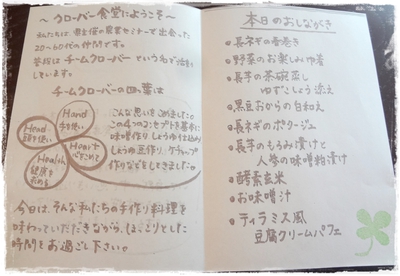 ～クローバー食堂にようこそ～
私たちは、県主催の農業セミナーで出会った
20～60代の仲間です。
普段はチームクローバーという名で活動を
しています。
チームクローバーの四つ葉は
Hand
手を使い
Head
頭を使い
Heart
心をこめて
Health
健康を
求める
こんな思いをこめました。
この4つのコンセプトを基本に
味噌作り、しょうゆ仕込み
しょうゆ豆作り、ケチャップ
作りなどをしてきました。
今日は、そんな私たちの手作り料理を
味わっていただきながら、ほっこりとした
時間をお過ごし下さい。
本日のおしながき
・長ネギの春巻き
・野菜のお楽しみ中着
・長芋の茶碗蒸し
ゆずこしょう添え
・黒豆おからの白和え
・長ネギのポタージュ
・長芋のもろみ漬けと
人参の味噌粕漬け
・酵素玄米
・お味噌汁
・ティラミス風
豆腐クリームパフェ